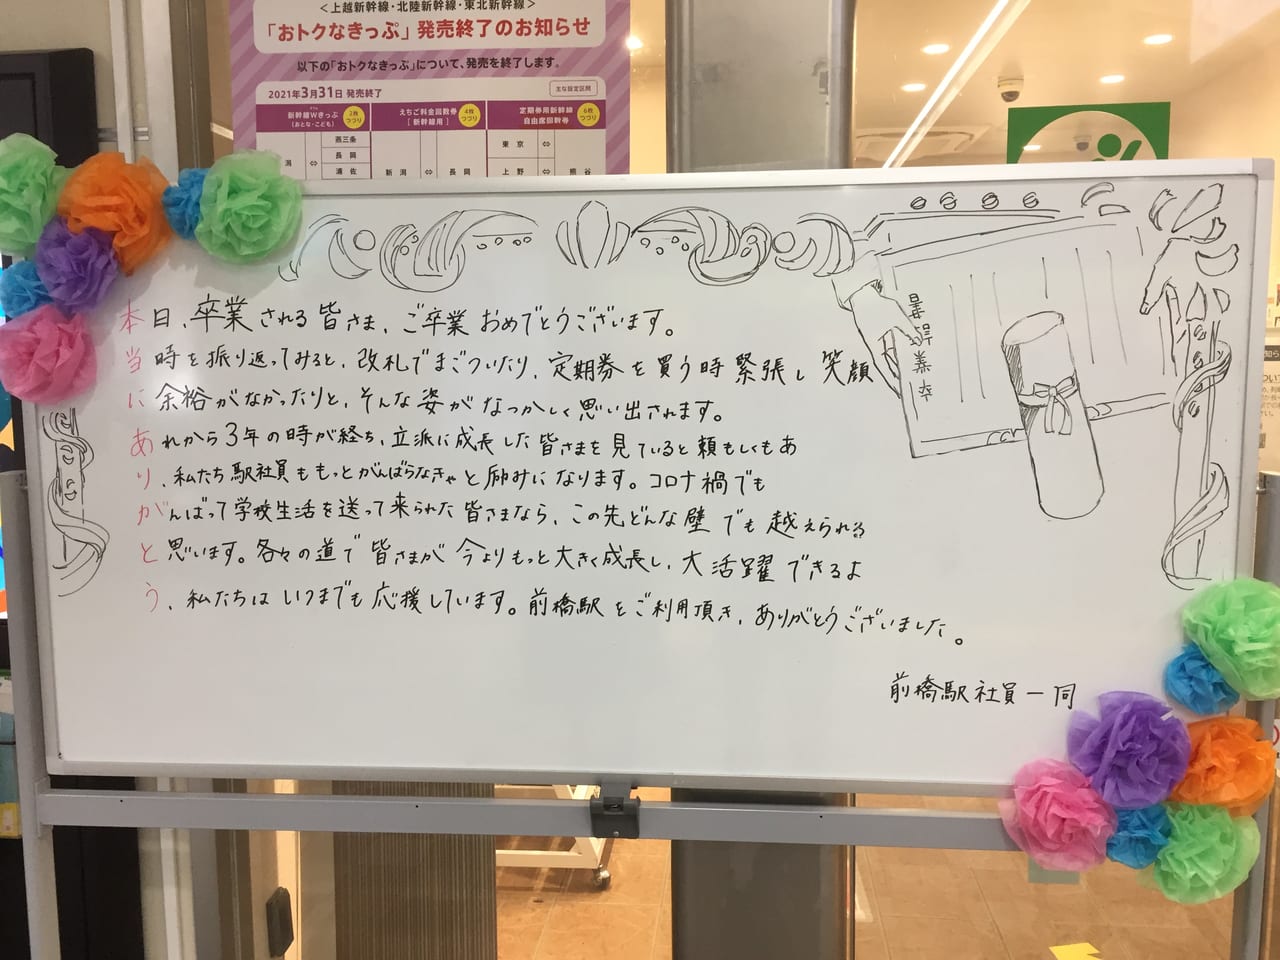 <上越新幹線・北陸新幹線・東北新幹線>
「おトクなきっぷ」発売終了のお知らせ
以下の「おトクなきっぷ」について、発売を終了します。
2021年3月31日発売終了
主な設定区間
新幹線Wきっぷ
(おとな・こども)
2枚つづり
えちご料金回数券
[新幹線用]
4枚つづり
定期券用新幹線
自由席回数券
6枚つづり
潟 ⇔ 燕三条
長岡
浦佐
新潟 ⇔ 長岡
東京 ⇔
上野 熊谷
本日、卒業される皆さま、ご卒業おめでとうございます。
当時を振り返ってみると、改札でまごついたり、定期券を買う時緊張し笑顔
に余裕がなかったりと、そんな姿がなつかしく思い出されます。
あれから3年の時が経ち、立派に成長した皆さまを見ていると頼もしくもあ
り、私たち駅社員ももっとがんばらなきゃと励みになります。コロナ禍でも
がんばって学校生活を送って来られた皆さまなら、この先どんな壁でも越えられる
と思います。各々の道で皆さまが今よりもっと大きく成長し、大活躍できるよ
う、私たちはいつまでも応援しています。前橋駅をご利用頂き、ありがとうございました。
前橋駅社員一同
卒業証書